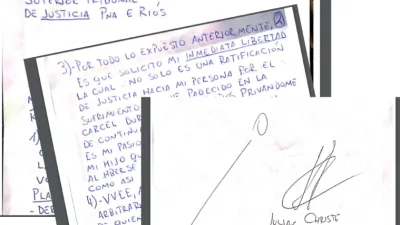 SUPERIOR TRIBUNAL
DE JUSTICIA PNA E RIOS
3)-POR TODO LO EXPUESTO ANTERIORMENTE,
ES QUE SOLICITO MI INMEDIATA LIBERTAD
LA CUAL NO SOLO ES UNA RATIFICACIÓN
DE JUSTICIA HACIA MI PERSONA POR EL
SUFRIMIENTO PADECIDO EN LA
CARCEL DUR PRIVANDOME
DE CONTINUA
ES MI PASIO
MI HIJO QU
AL HBERSE
COMO ASI
4)-VVEE, A
ARBITRAR
DE QUIEN
1)
LA
VO
PLA
-DEB
JULIAN CHRISTE